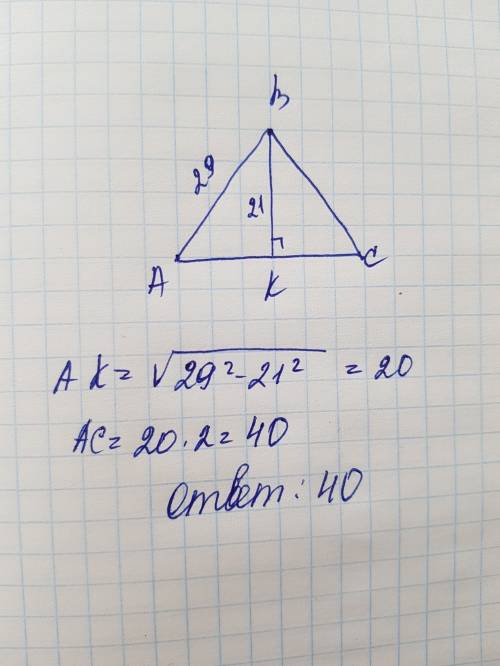 B
29
21
A
K
C
AK = √29²-21² = 20
AC = 20·2 = 40
Ответ: 40